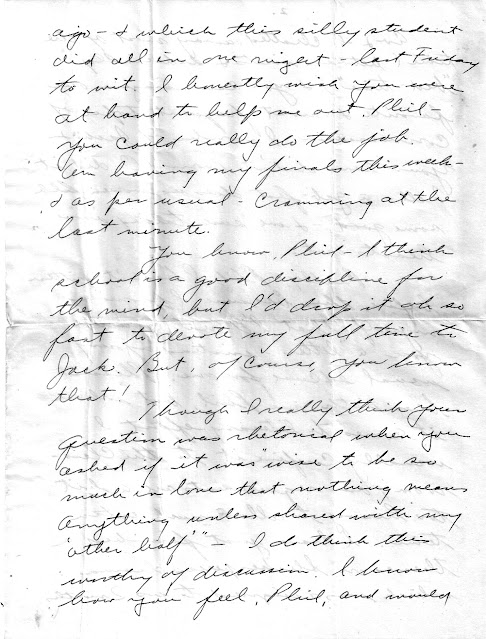 ago - & which this silly student
did all in one night - last Friday
to wit. I honestly wish you were
at hand to help me out, Phil -
you could really do the job.
Am having my finals this week -
& as per usual - cramming at the
last minute.
You know, Phil - I think
school is a good discipline for
the mind, but I'd drop it oh so
fast to devote my full time to
Jack. But, of course, you know
that!
Though I really think your
question was rhetorical when you
asked if it was "wise to be so
much in love that nothing means
anything unless shared with my
'other half'" - I do think this
worthy of discussion. I know
how you feel, Phil, and would